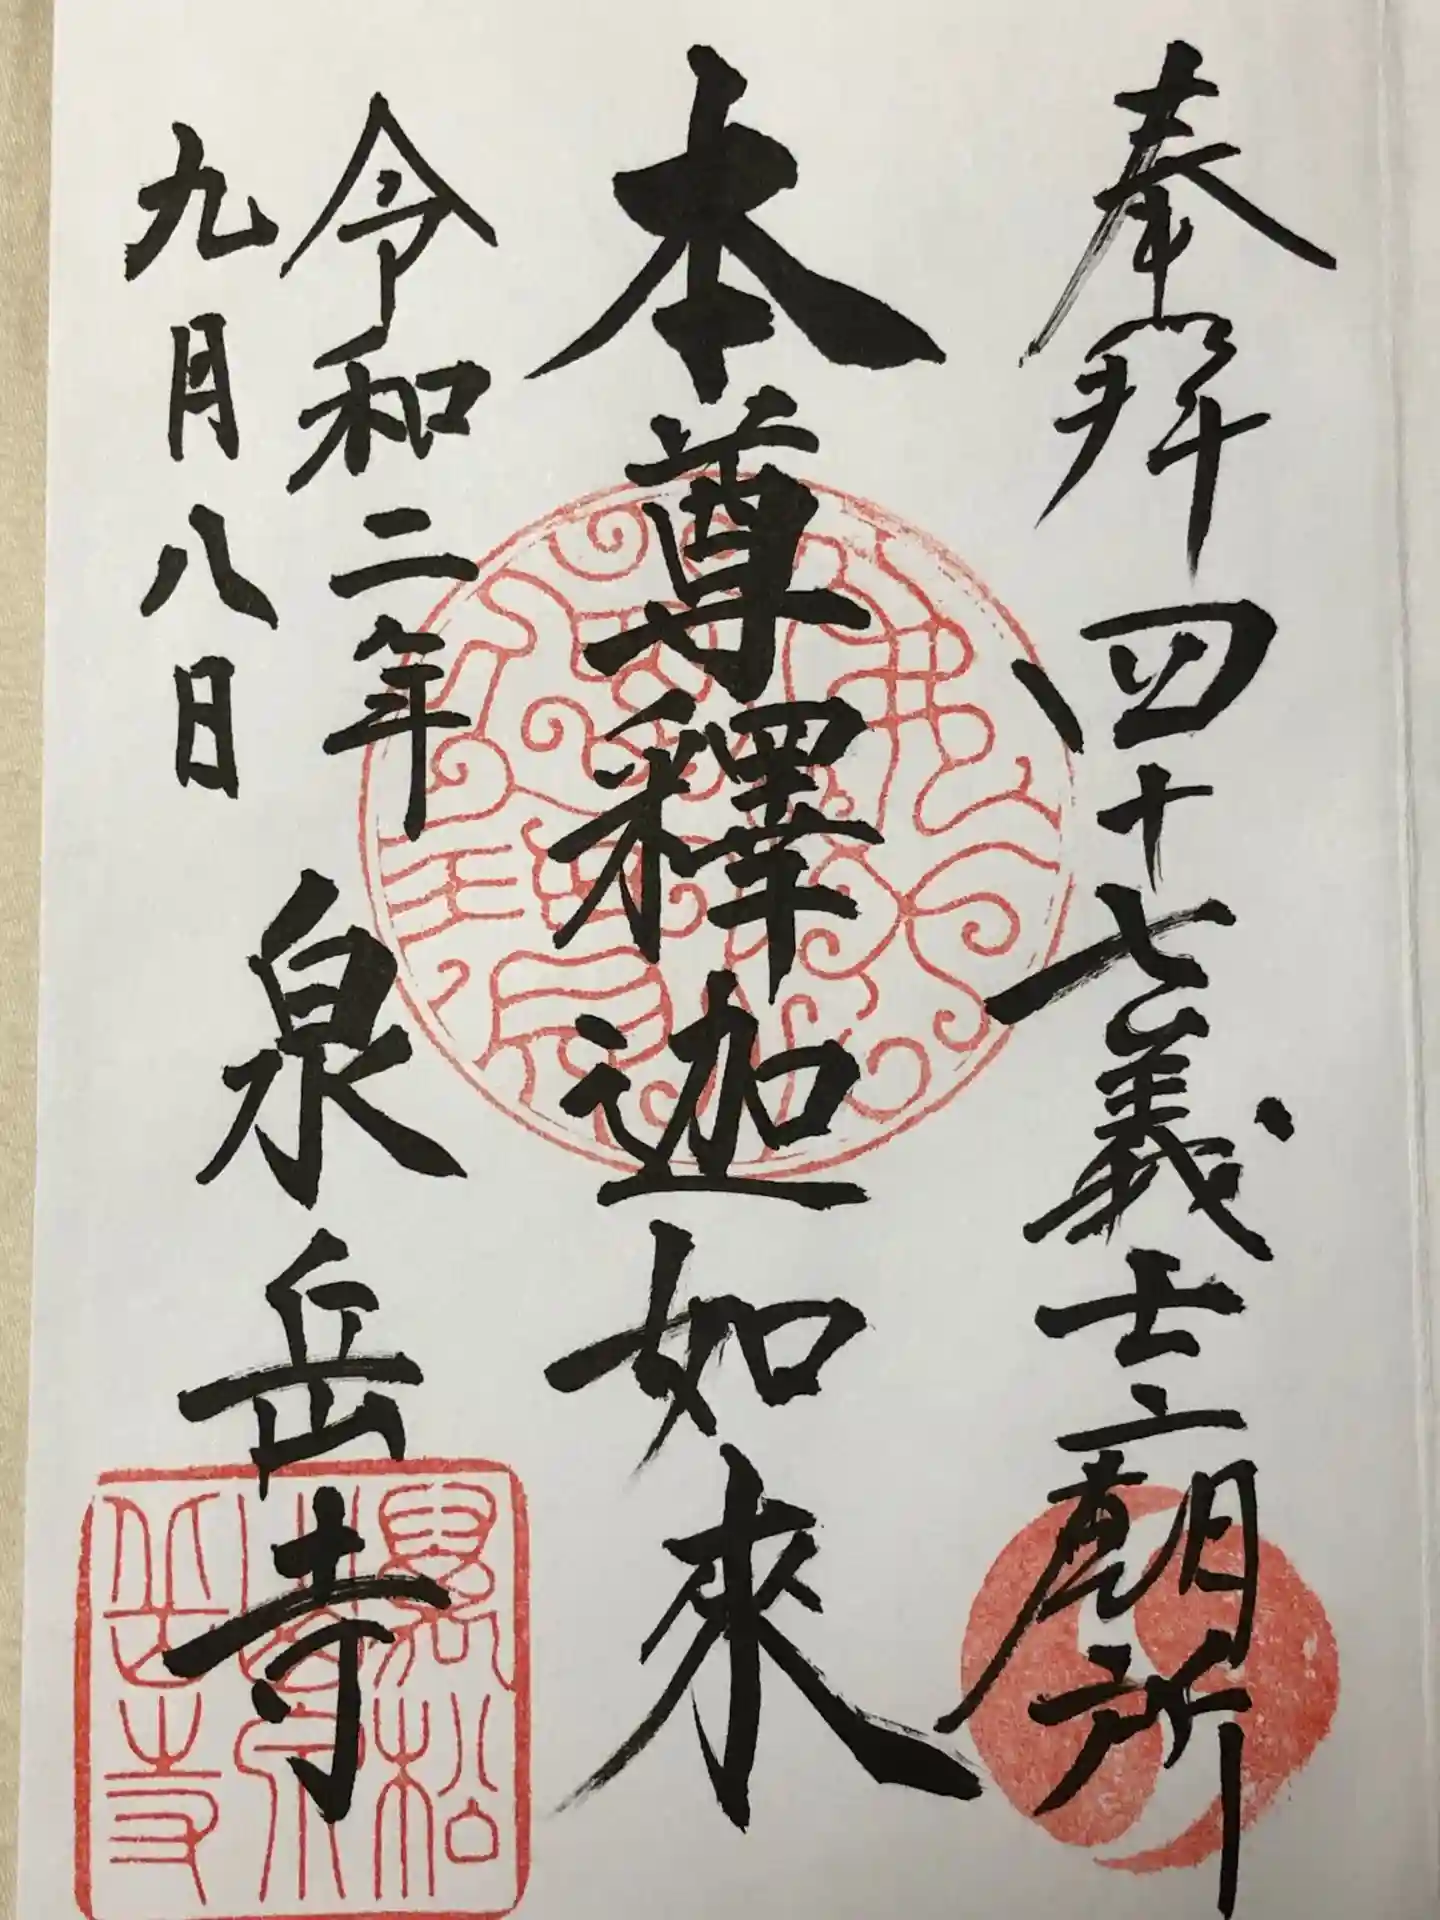 奉拜四十七義士廟所
本尊釋迦如來
令和二年
九月八日
泉岳寺
萬松
山泉
岳寺